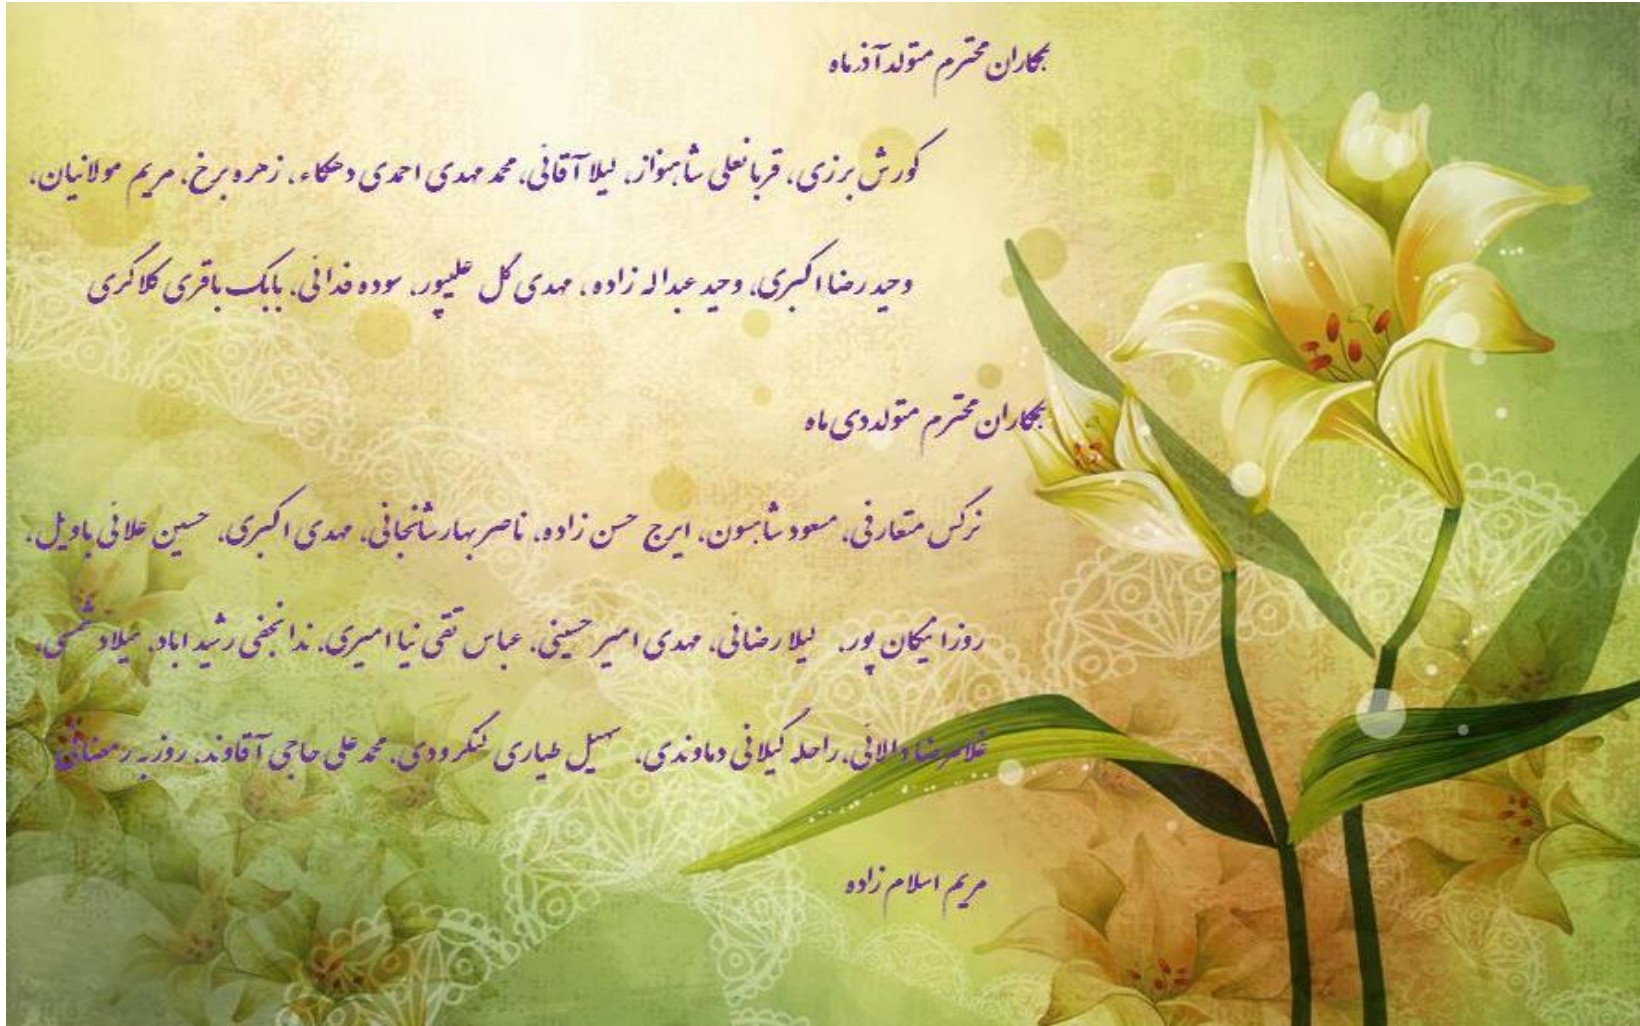 همکاران محترم متولد آذر ماه
کورش برزی، قربانعلی شاهنواز، لیلا آقائی، محمد مهدی احمدی دهکاء، زهره برخ، مریم مولائیان،
وحید رضا اکبری، وحید عبداله زاده، مهدی گل علیپور، سوده فدائی، بابک باقری کلاگری
همکاران محترم متولد دی ماه
نرگس متعارفی، مسعود شاهسون، ایرج حسن زاده، ناصر بهارشانجانی، مهدی اکبری، حسین علائی باویل،
روزا نیکان پور، لیلا رضائی، مهدی امیر حسینی، عباس تقی نیا امیری، ندا نجفی رشید اباد، میلاد شمسی،
غلامرضا دالائی، راحله گیلانی دماوندی، سهیل طیاری لنگرودی، محمد علی حاجی آقاوند، روزبه رمضانی
مریم اسلام زاده